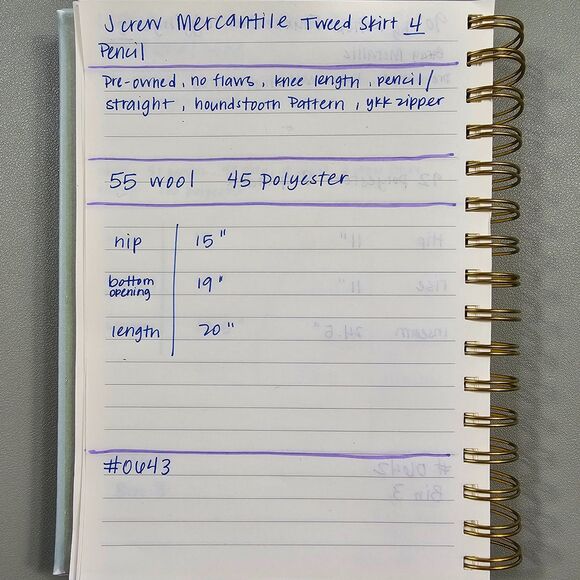 J crew Mercantile Tweed Skirt 4
Pencil
Pre-owned, no flaws, knee length, pencil/
straight, houndstooth Pattern, ykk zipper
55 wool 45 polyester
hip 15"
bottom opening 19"
length 20"
#0643
#0642
Bin 3